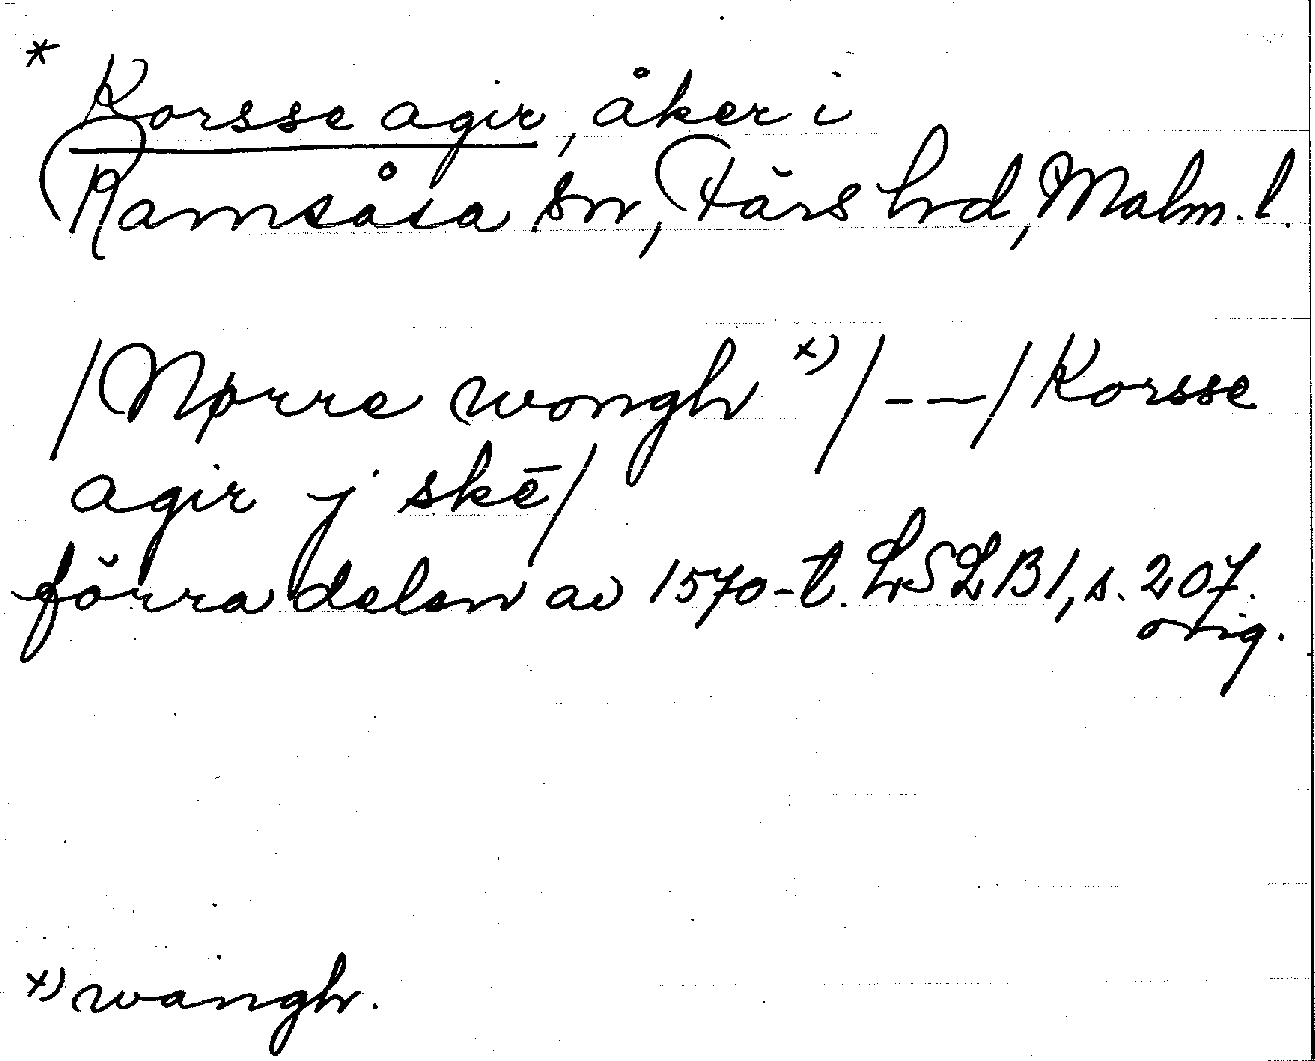 * Korsse agir, åker i
Ramsåsa sn, Färs hrd, Malm. l.
/Nørre wongh x)/ -- / Korsse
agir j skē/
förra delen av 1570-t. LSLB 1, s. 207.
orig.
x) wangh.